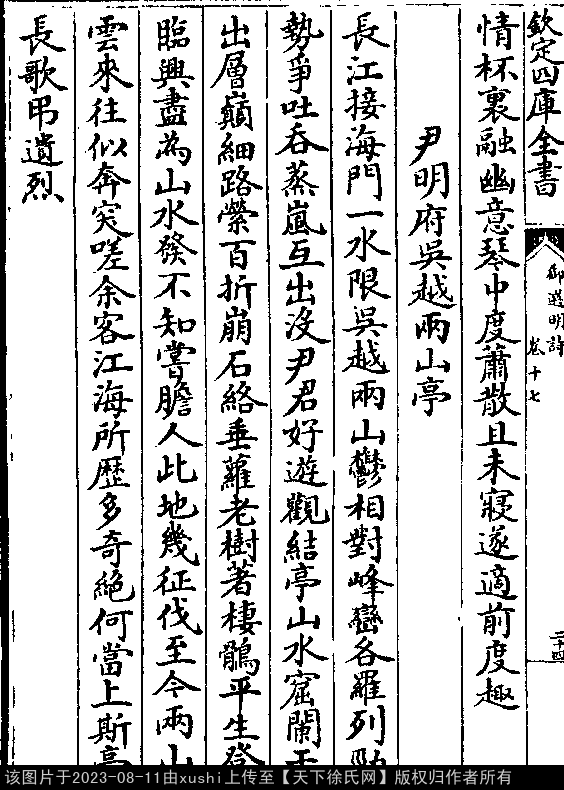 欽定四庫全書
御選明詩
卷十七
二十四
情杯裏融幽意琴中度蕭散且未寢遂適前度趣
尹明府吳越兩山亭
長江接海門一水限吳越兩山鬱相對峰巒各羅列
勢爭吐吞蒸嵐互出沒尹君好遊觀結亭山水窟闌
出層巔細路縈百折崩石絡垂蘿老樹著棲鶻平生登
臨興盡為山水發不知嘗膽人此地幾征伐至今兩山
雲來往似奔突嗟余客江海所歷多奇絕何當上斯亭
長歌弔遺烈
该图片于2023-08-11由xushi上传至【天下徐氏网】版权归作者所有